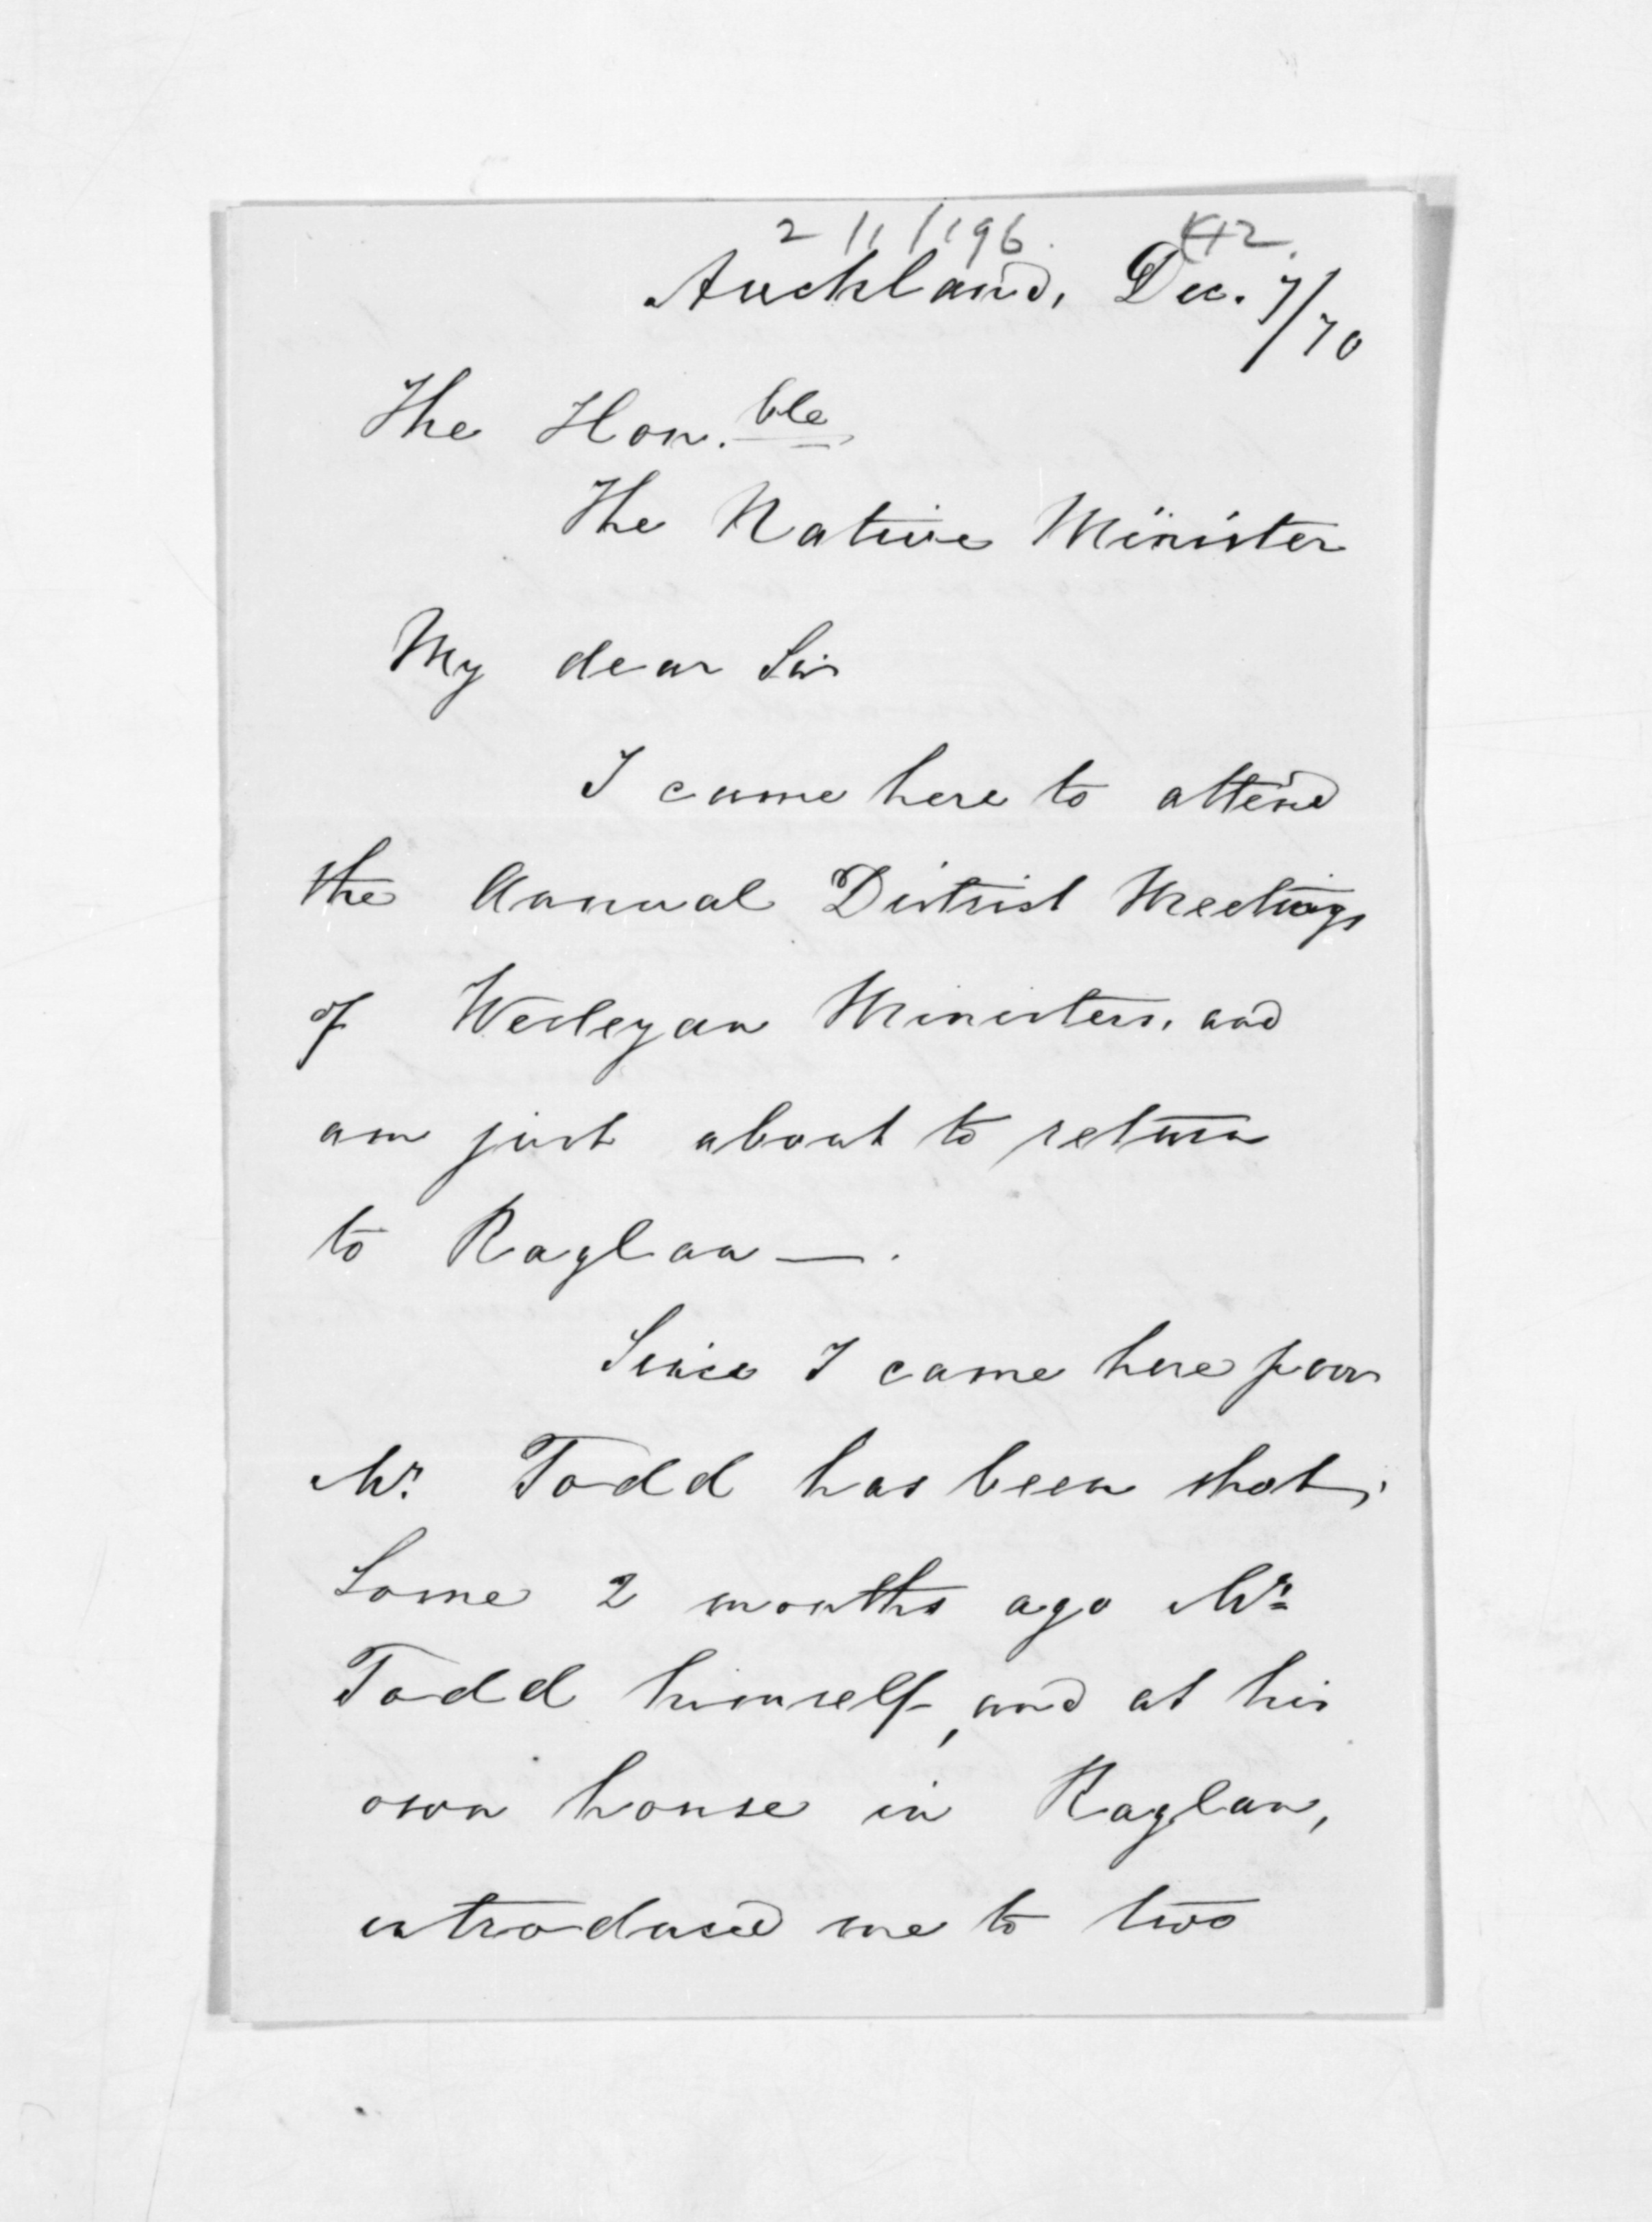 Auckland, Dec. 7/70
The Hon.ble
The Native Minister
My dear Sir
I came here to attend
the Annual District Meetings
of Wesleyan Ministers, and
am just about to return
to Raglan —.
Since I came here poor
Mr. Todd has been shot;
Some 2 months ago Mr
Todd himself, and at his
own house in Raglan,
introduced me to two